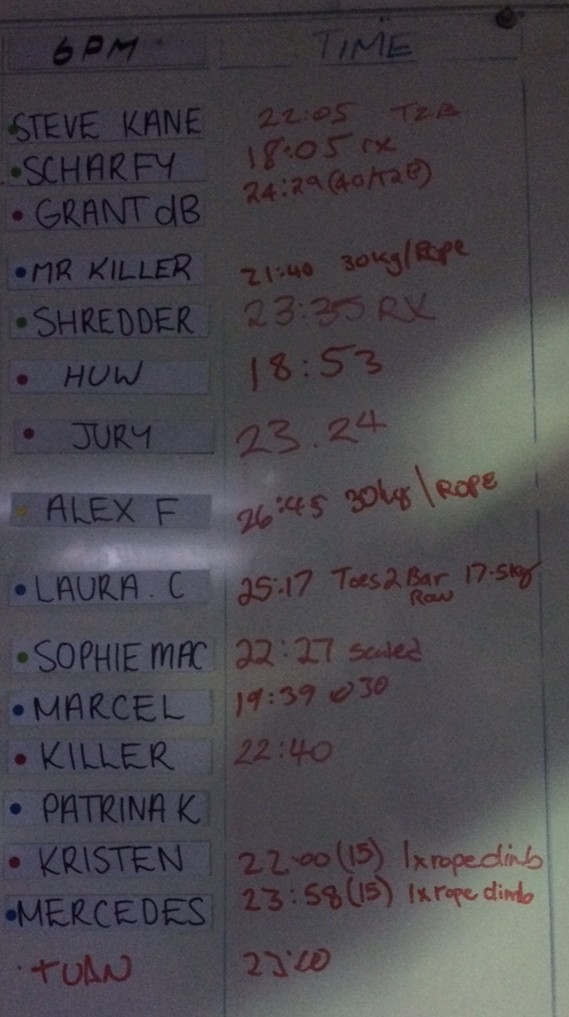 6PM TIME
STEVE KANE 22:05 T2B
SCHARFY 18:05 rx
GRANT dB 24:29 (40/T2B)
MR KILLER 21:40 30kg/Rope
SHREDDER 23:35 RX
HUW 18:53
JURY 23.24
ALEX F 26:45 30kgs \ ROPE
LAURA. C 25:17 Toes2Bar 17.5kg
Row
SOPHIE MAC 22:27 scaled
MARCEL 19:39 @30
KILLER 22:40
PATRINA K
KRISTEN 22:00 (15) 1xrope climb
MERCEDES 23:58 (15) 1x rope climb
TUAN